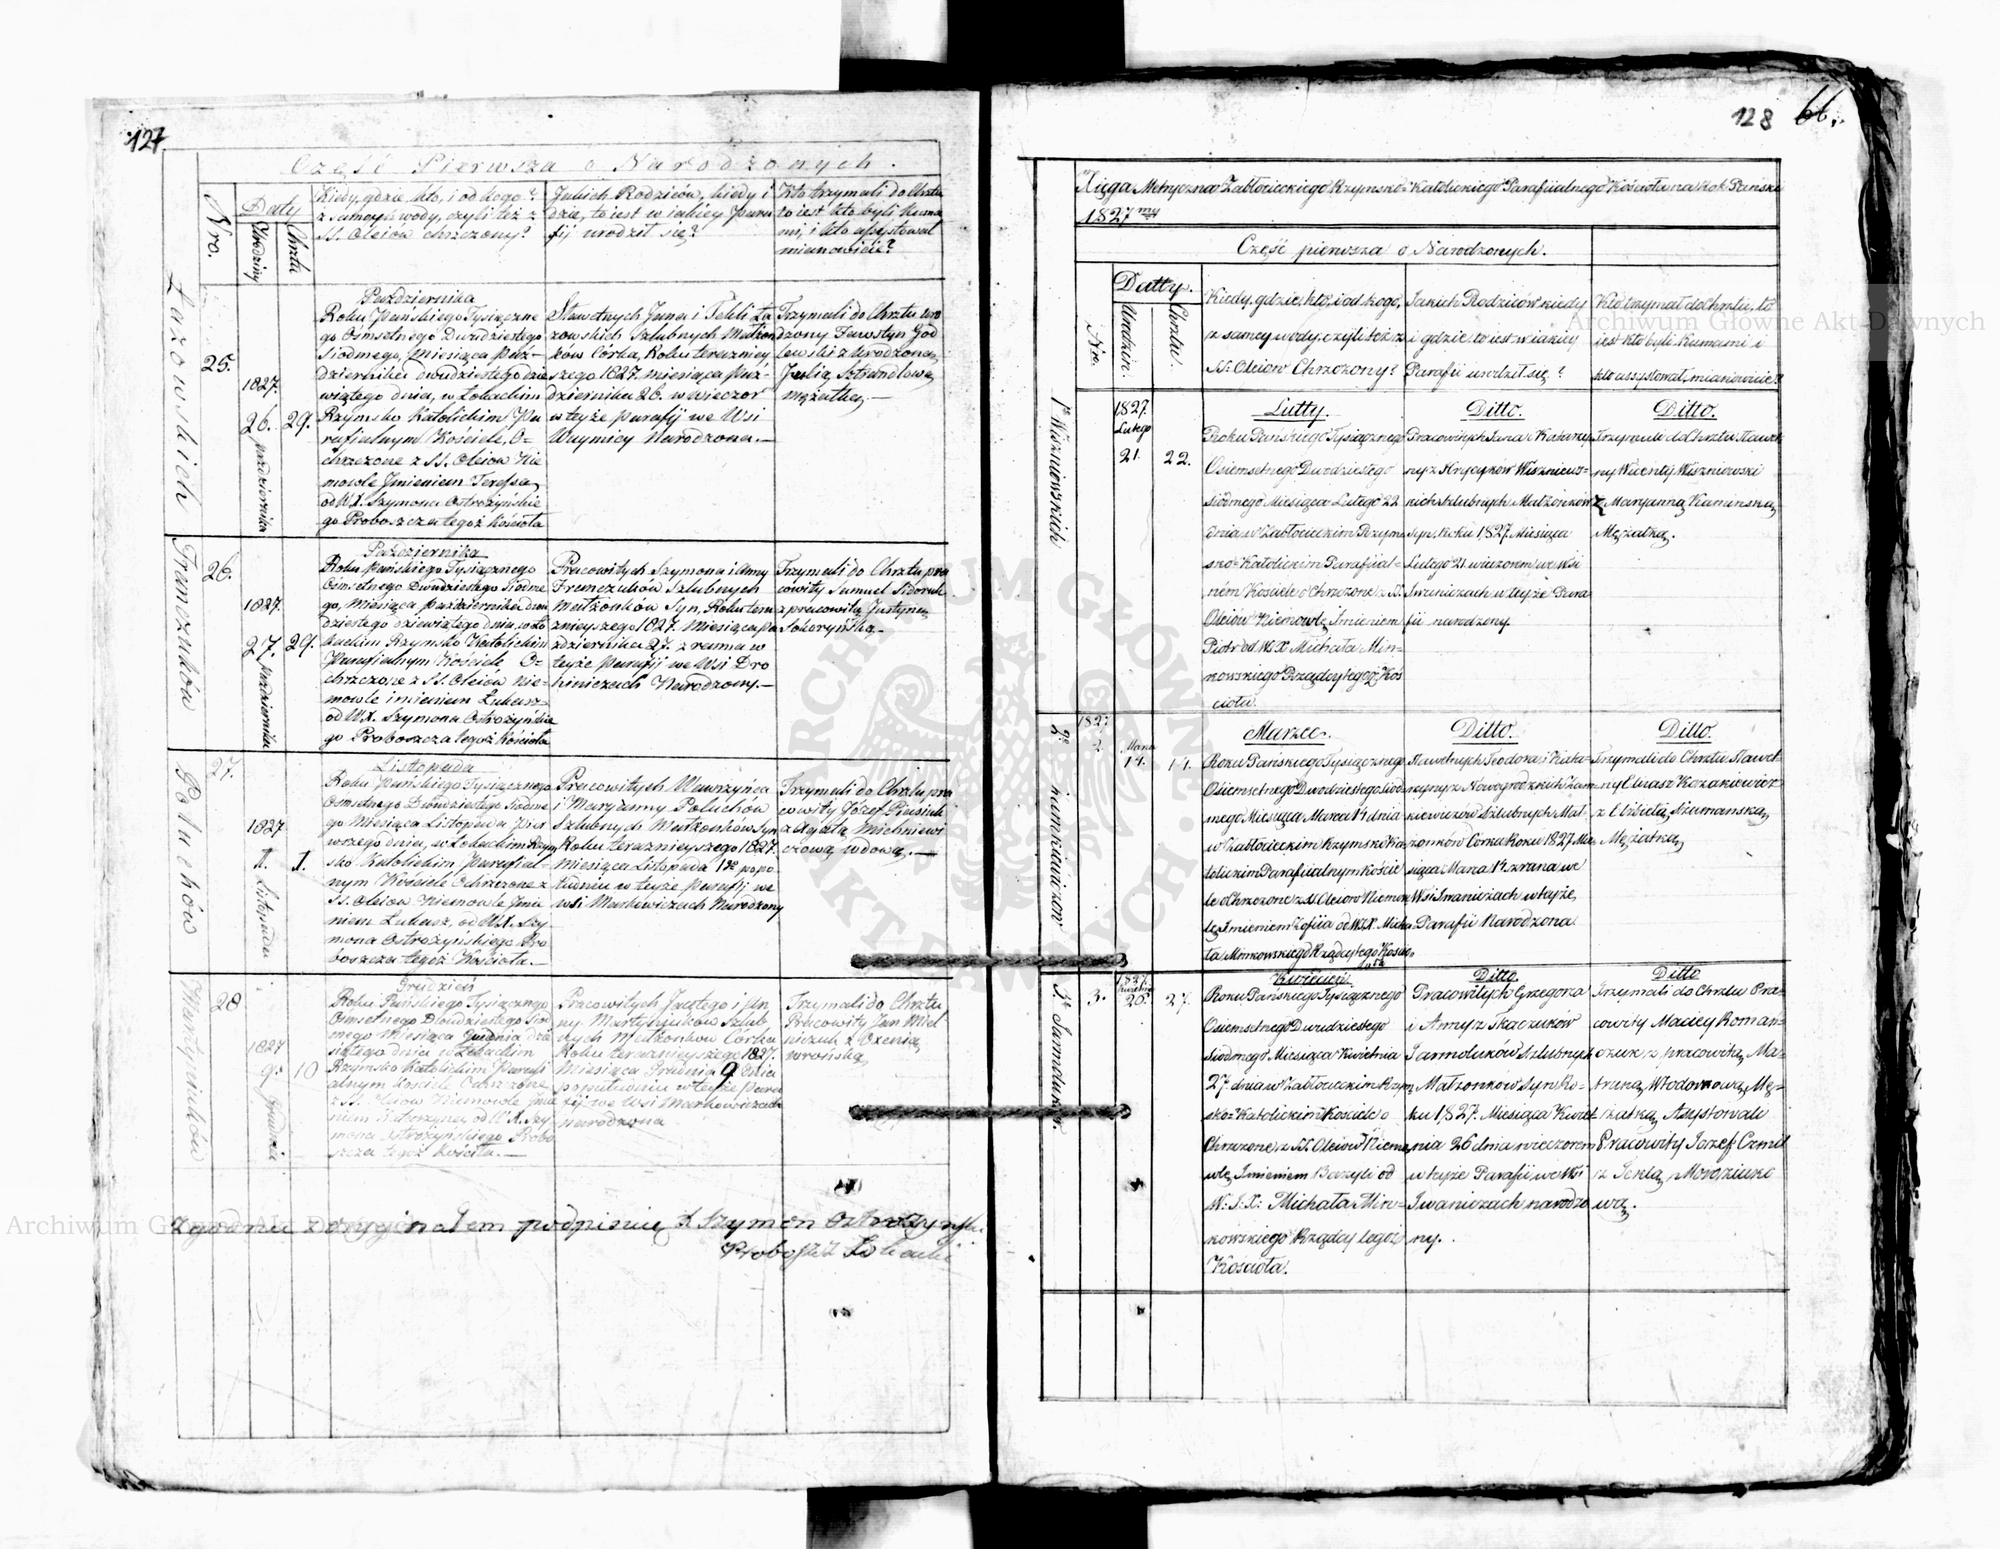 127
Część Pierwsza o Narodzonych.
Nro.
Daty
Urodziny
Chrztu
Kiedy, gdzie, kto, i od kogo?
z samcyli wody, czyli też z
SS. Oleiów chrzczony?
Jakich Rodziców, kiedy i
dzie, to iest w iakiey Para
fij urodził się?
Kto trzymali do Chrztu
to iest kto byli Kuma
mi, i kto assystował
mianowicie?
Łazowskich
25.
1827.
26.
29.
października
Października
Roku Pańskiego Tysiączne
go Osmsetnego Dwudziestego
Siodmego, Miesiąca Paź-
dziernika dwudziestego dzie
wiątego dnia, w Łokackim
Rzymsko Katolickim Pa
rafialnym Kościele, O=
chrzczone z SS. Oleiów Nie
mowle Jmieniem Teressa,
od WX. Szymona Ostrożyńskie
go Proboszcza tegoż Kościoła
Sławetnych Jana i Tekli Ła
zowskich Szlubnych Małżon
ków Córka, Roku teraźniey
szego 1827. miesiąca Paź-
dziernika 26. w wieczor
w teyże parafij we Wsi
Narodzona.—
Trzymali do Chrztu uro
dzony Fawstyn God
lewski z Urodzoną
Julią Sztrandlową
mężatką.—
Franczuków
26.
1827.
27.
29.
października
Października
Roku Pańskiego Tysiącznego
Osmsetnego Dwudziestego Siodme
go, Miesiąca Października dwu
dziestego dziewiątego dnia, w Ło
kackim Rzymsko Katolickim
Parafialnym Kościele O=
chrzczone z SS. Oleiów Nie=
mowle imieniem Łukasz
od WX. Szymona Ostrożyńskie
go Proboszcza tegoż Kościoła
Pracowitych Szymona i Anny
Frenczuków Szlubnych
Małżonków Syn, Roku tera
znieyszego 1827. Miesiąca Pa
ździernika 27. z rana w
teyże parafij we Wsi Dro
hiniczach Narodzony.—
Trzymali do Chrztu pra
cowity Samuel Sidoruk
z pracowitą Justyną
Sakoryńską.—
Poluchów
27.
1827
1.
1.
Listopada
Listopada
Roku Pańskiego Tysiącznego
Osmsetnego Dwudziestego Siodme
go Miesiąca Listopada Pier
wszego dnia, w Łokackim Rzym
sko Katolickim, Parafial-
nym Kościele Ochrzczone z
SS. Oleiów Niemowle Jmie
niem Łukasz, od WX. Szy-
mona Ostrożyńskiego Pro
boszcza tegoż Kościoła.—
Pracowitych Wawrzyńca
i Maryanny Poluchów
Szlubnych Małżonków Syn
Roku teraznieyszego 1827.
Miesiąca Listopada 1go popo-
łudniu w teyże parafij we
wsi Markowiczach Narodzony
Trzymali do Chrztu pra
cowity Józef
z Agatą Michniewi
czową, wdową.—
Martyniuków
28
1827
9.
10
Grudnia
Grudzień
Roku Pańskiego Tysiącznego
Osmsetnego Dwudziestego Siod
mego Miesiąca Grudnia dzie
siątego dnia w Łokackim
Rzymsko Katolickim Parafi
alnym Kościele Ochrzczone
z SS. Oleiów Niemowle Jmie
niem Katarzyna, od WX. Szy
mona Ostrożyńskiego Probo
szcza tegoż Kościoła.—
Pracowitych Jacętego i An
ny Martyniuków Szlub
nych Małżonków Córka
Roku teraznieyszego 1827.
Miesiąca Grudnia 9 Dnia
popołudniu w teyże para
fij we Wsi Markowiczach
narodzona
Trzymali do Chrztu
Pracowity Jan Miel
niczuk z Oxenią
Zgodnie z oryginałem podpisuię X Szymon Ostrożyński
Proboszcz Łokacki
128
66.
Xięga Metryczna Zabłocieckiego Rzymsko-Katolickiego Parafiialnego Kościoła na Rok Pański
1827my
Część pierwsza o Narodzonych.
Nro.
Datty.
Urodzin.
Chrztu.
Kiedy, gdzie, kto, i od kogo,
z samey wody, czyli też z
SS. Oleiow Chrzczony?
Jakich Rodziców kiedy
i gdzie to iest w iakiey
Parafii urodził się?
Kto trzymał do Chrztu, to
iest kto byli Kumami i
kto assystował, mianowicie?
1o Wiszniewskich
1827.
Lutego
21.
22.
Lutty.
Roku Pańskiego Tysiącznego
Osiemsetnego Dwudziestego
Siódmego Miesiąca Lutego 22
dnia w Zabłocieckim Rzyms
sko-Katolickim Parafiial-
ném Kościele o Chrzczone z SS.
Oleiów Niemowle Jmieniem
Piotr od WX Michała Min-
kowskiego Rządcy tegoż Koś
cioła.
Ditto.
Pracowitych Jana i Katarzy
ny z Hrycyków Wiszniews-
kich Szlubnych Małżonkow
Syn, Roku 1827. Miesiąca
Lutego 21. wieczorem we Wsi
Iwaniczach w teyże Para
fii narodzony
Ditto.
Trzymali do Chrztu Sławet
ny Wicenty Wiszniowski
z Maryanną Kaminską
Mężatką.
2o
1827.
2.
Marca
14.
14.
Marzec.
Roku Pańskiego Tysiącznego
Osiemsetnego Dwudziestego Siód
mego Miesiąca Marca 14 dnia
w Zabłocieckim Rzymsko Ka
tolickim Parafiialnym Koście
le o Chrzczone z SS. Oleiow Niemow
le, Jmieniem Zofiia od WX. Micha
ła Minkowskiego Rządcy tego Kościo
ła
Ditto.
Sławetnych Teodora i Kata-
rzyny z Nowogrodzkich Ham
kiewiczów Szlubnych Mał-
żonków Córka Roku 1827. Mie
siąca Marca 14. z rana we
Wsi Iwaniczach w teyże
Parafii Narodzona
Ditto.
Trzymali do Chrztu Sławet-
ny Eliasz Kozakiewicz
z Elżbietą Szumanską
Mężatką
3o Jarmoluków.
3.
1827.
Kwietnia
26.
27.
Kwiecień.
Roku Pańskiego Tysiącznego
Osiemsetnego Dwudziestego
Siodmego Miesiąca Kwietnia
27 dnia w Zabłocieckim Rzym
sko-Katolickim Kościele o
Chrzczone z SS. Oleiów Niemo
wle, Jmieniem Bazyli od
W. J. X: Michała Min-
kowskiego Rządcy tegoż
Kościoła.
Ditto.
Pracowitych Grzegorza
i Anny z Tkaczuków
Jarmoluków Szlubnych
Małżonków Syn Ro-
ku 1827. Miesiąca Kwiet
nia 26 dnia wieczorem
w teyże Parafii we Wsi
Iwaniczach narodzo
ny.
Ditto
Trzymali do Chrztu Pra-
cowity Maciey Roman-
czuk z pracowitą Ma-
truną Włodorkową Mę-
żatką, Asystowali
Pracowity Jozef Czmil
z Teklą Moroziuko
wą.
Archiwum Główne Akt Dawnych
Archiwum Główne Akt Dawnych
ARCHIWUM GŁÓWNE AKT DAWNYCH